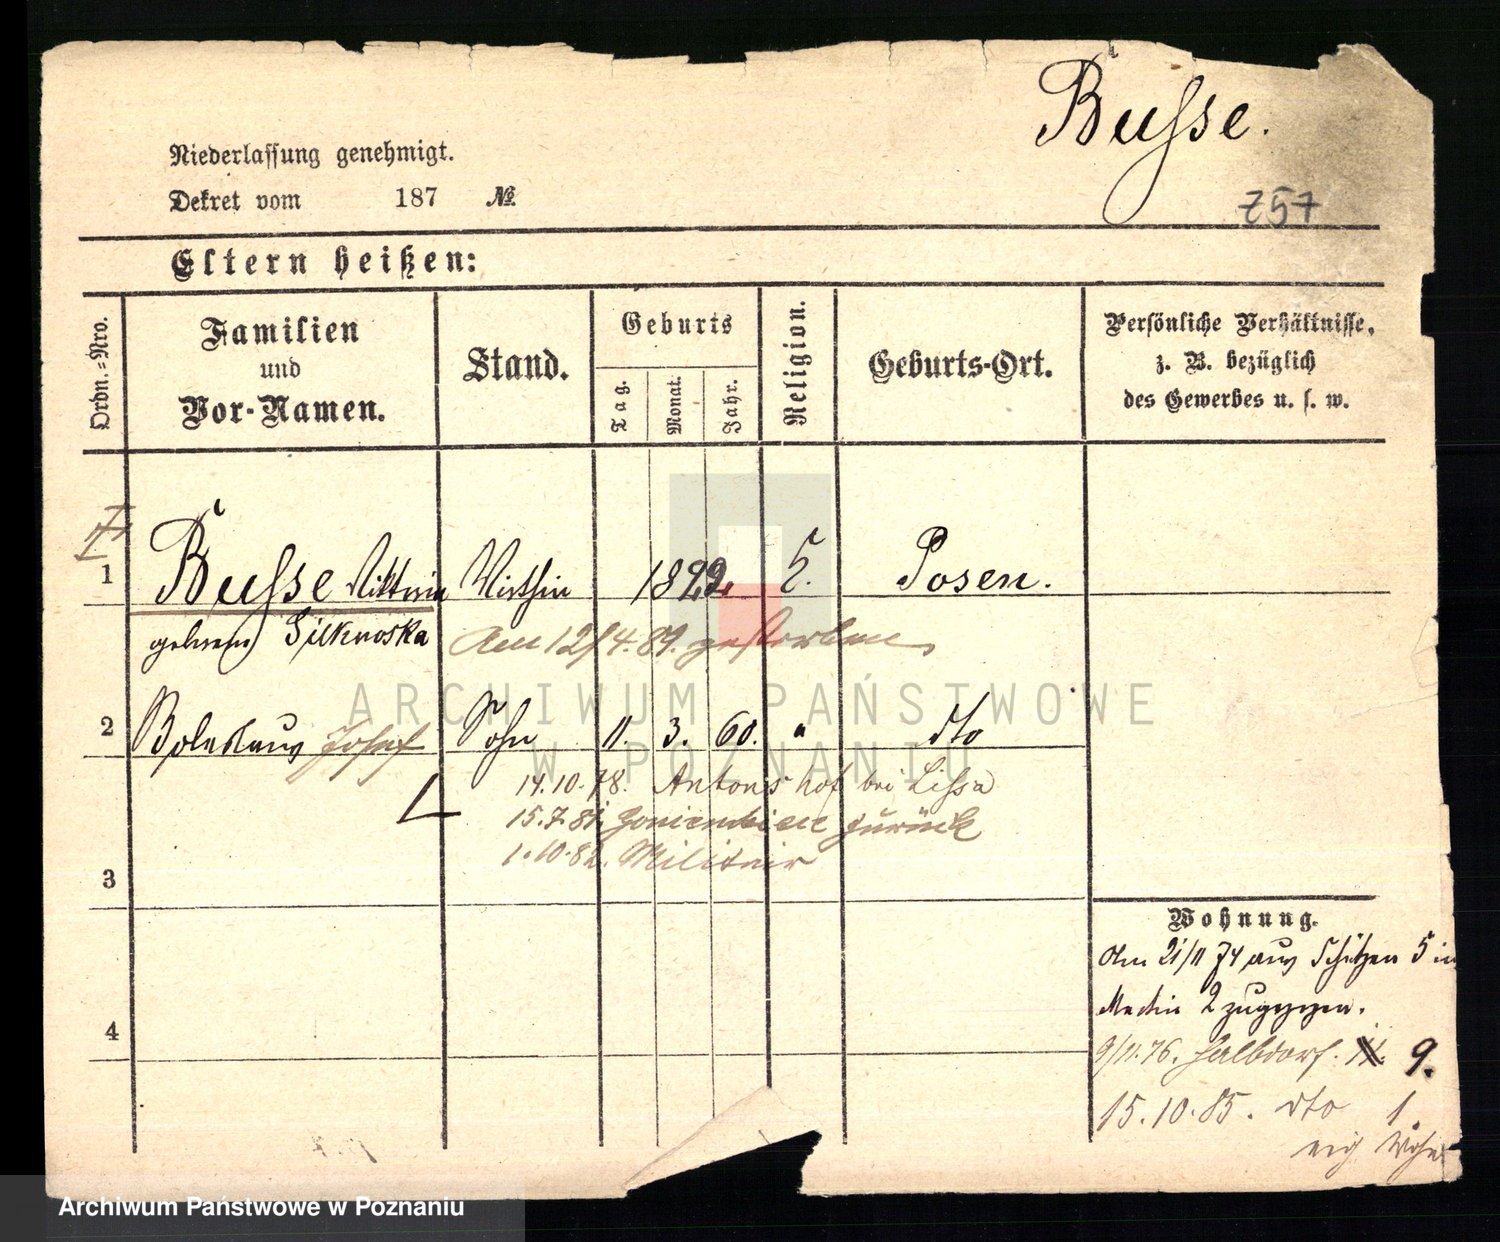 Busse.
Niederlassung genehmigt.
Dekret vom 187 №
Z57
Eltern heißen:
Ordn.=Nro.
Familien
und
Vor-Namen.
Stand.
Geburts
Tag.
Monat.
Jahr.
Religion.
Geburts-Ort.
Persönliche Verhältnisse,
z. B. bezüglich
des Gewerbes u. s. w.
1 Busse Viktoria Wirthin 1822. Posen.
geborene
Am 12/4.89. gestorben
2 Boleslaus Josef Sohn 11. 3. 60. " dto
14.10.78. Antonshof bei Lissa
15.7.81. zurück
1.10.82. Militair
3
4
Wohnung.
Am 21/11 74 aus Schützen 5 in
2 zugezogen.
9/11.76. Halbdorf. 9.
15.10.85. dto 1.
ARCHIWUM PAŃSTWOWE
W POZNANIU
Archiwum Państwowe w Poznaniu